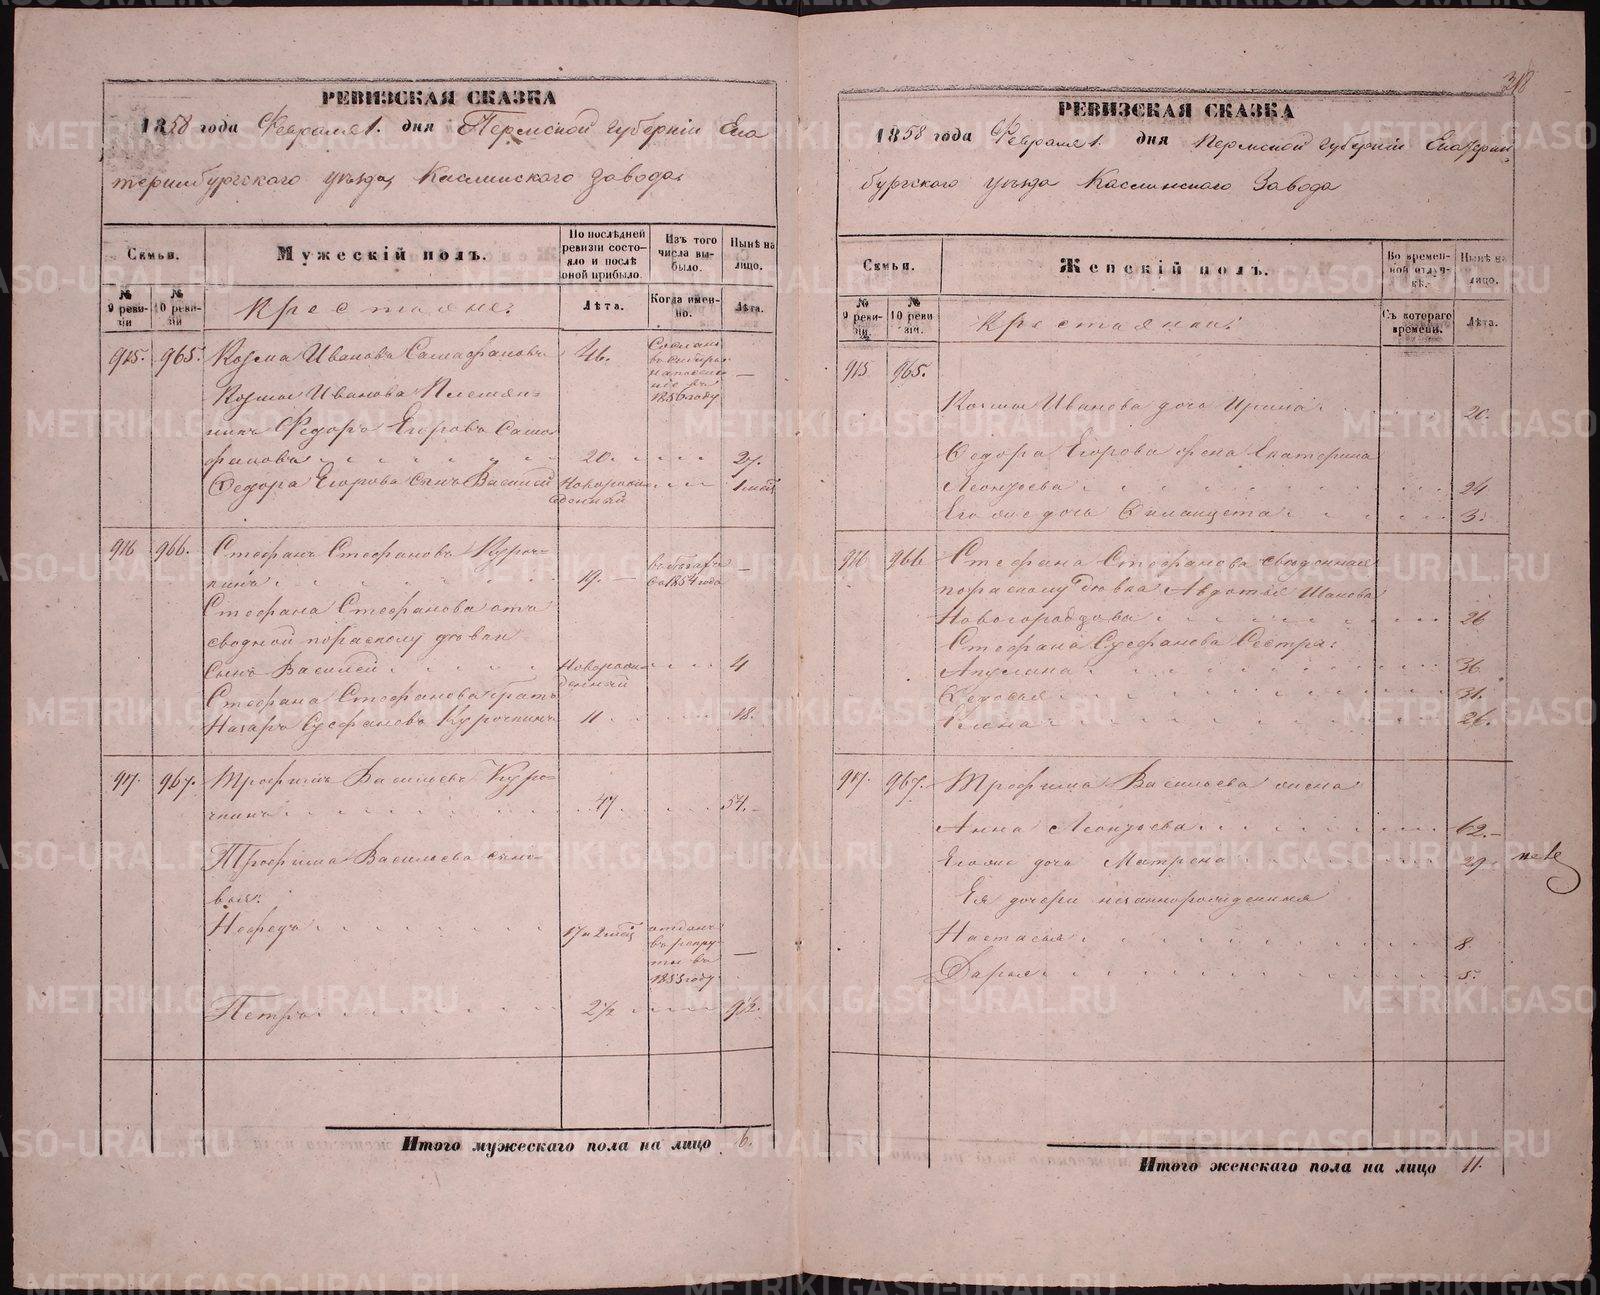 318
РЕВИЗСКАЯ СКАЗКА
1858 года Февраля 1. дня Пермской губерніи Ека
теринбургскаго уѣзда, Каслинского завода.
Семьи.
Мужескій полъ.
По послѣдней ревизіи состояло и послѣ оной прибыло.
Изъ того числа выбыло.
Нынѣ на лицо.
№ 9 ревизіи
№ 10 ревизіи
Крестьяне:
Лѣта.
Когда именно.
Лѣта.
915. 965. Козма Ивановъ 46. Сосланъ
въ Сибирь
на поселе
ніе въ
1856 году —
Козмы Иванова Племян-
никъ Федоръ Егоровъ
20. 27.
Федора Егорова сынъ Василей Новорож
денный 1 мсц
916 966. Стефанъ Стефановъ Куроч-
кинъ 19. — въ бѣгах
съ 1854 года —
Стефана Стефанова отъ
сводной по расколу дѣвки
сынъ Василей Новорож
денный 4
Стефана Стефанова братъ
Назаръ Стефановъ Курочкинъ 11 18.
917. 967. Трофимъ Васильевъ Куро-
чкинъ 47. 54.
Трофима Васильева сыно-
вья:
Нефедъ 17 и 2 мсц отданъ
въ рекру
ты въ
1853 году —
Петръ 2½ 9½.
Итого мужескаго пола на лицо 6.
РЕВИЗСКАЯ СКАЗКА
1858 года Февраля 1. дня Пермской губерніи Екатерин
бургскаго уѣзда Каслинскаго Завода
Семьи.
Женскій полъ.
Во временной отлучкѣ.
Нынѣ на лицо.
№ 9 ревизіи.
№ 10 ревизіи.
Крестьянки:
Съ котораго времени.
Лѣта.
915 965.
Козмы Иванова дочь Ирина 20.
Федора Егорова жена Екатерина
Леонтьева 24
Его же дочь 3.
916 966 Стефана Стефанова сведенная
по расколу дѣвка Авдотья
Новогородцова 26
Стефана Стефанова Сестры:
36.
Федосья 31.
Елена 26.
917. 967. Трофима Васильева жена
Анна Леонтьева 62.
Его же дочь Матрена 29
Ея дочери незаконнорожденныя
Настасья 8.
Дарья 5.
Итого женскаго пола на лицо 11.
METRIKI.GASO-URAL.RU